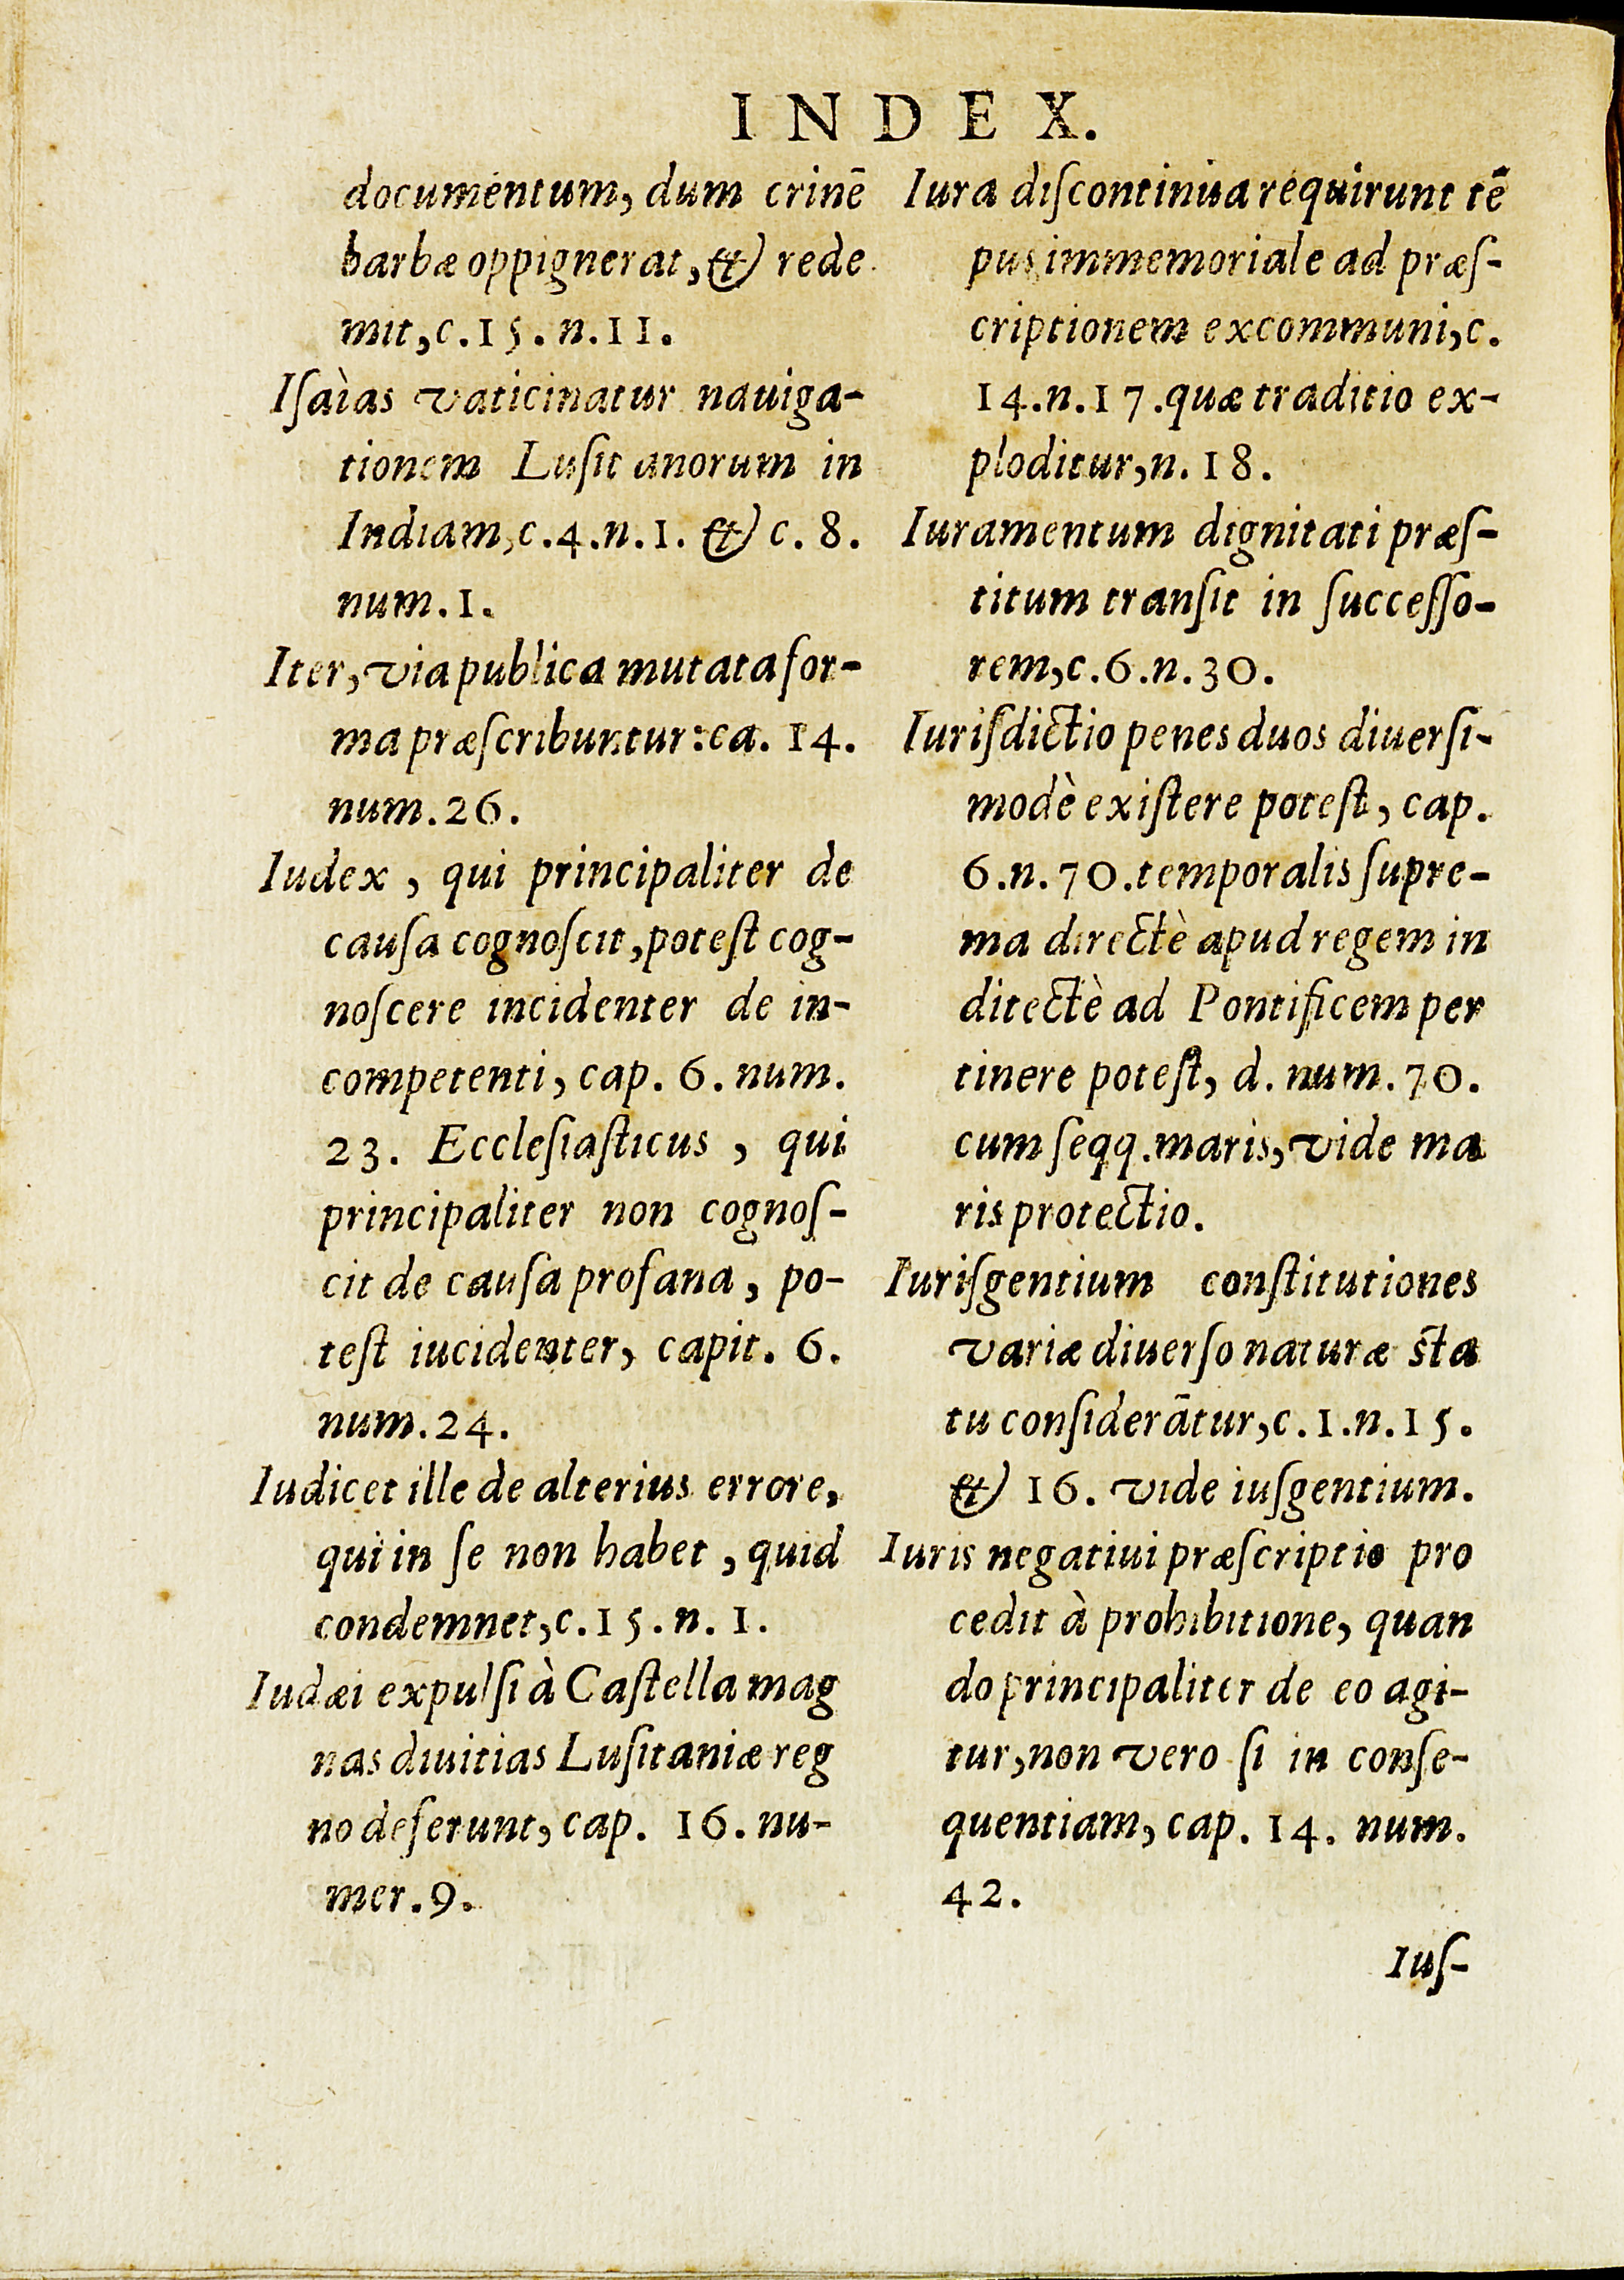 INDEX.
documentum, dum crinē
barbæ oppignerat, & rede
mit, c.15. n.11.
Iſaìas vaticinatur nauiga-
tionem Luſitanorum in
Indiam, c.4.n.1. & c. 8.
num.1.
Iter, via publica mutata for-
ma præſcribuntur: ca. 14.
num.26.
Iudex, qui principaliter de
cauſa cognoſcit, poteſt cog-
noſcere incidenter de in-
competenti, cap. 6. num.
23. Eccleſiaſticus, qui
principaliter non cognoſ-
cit de cauſa profana, po-
teſt iucidenter, capit. 6.
num.24.
Iudicet ille de alterius errore,
qui in ſe non habet, quid
condemnet, c.15.n. 1.
Iudæi expulſi à Caſtella mag
nas diuitias Luſitaniæ reg
no deferunt, cap. 16. nu-
mer.9.
Iura diſcontinua requirunt tē
pus immemoriale ad præſ-
criptionem ex communi, c.
14.n.17.quæ traditio ex-
ploditur, n. 18.
Iuramentum dignitati præſ-
titum tranſit in ſucceſſo-
rem, c.6.n.30.
Iuriſdictio penes duos diuerſi-
modè exiſtere poteſt, cap.
6.n.70.temporalis ſupre-
ma directè apud regem in
ditectè ad Pontificem per
tinere poteſt, d. num.70.
cum ſeqq.maris, vide ma
ris protectio.
Iuriſgentium conſtitutiones
variæ diuerſo naturæ ſta
tu conſiderātur, c.1.n.15.
& 16. vide iuſgentium.
Iuris negatiui præſcriptio pro
cedit à prohibitione, quan
do principaliter de eo agi-
tur, non vero ſi in conſe-
quentiam, cap. 14. num.
42.
Iuſ-